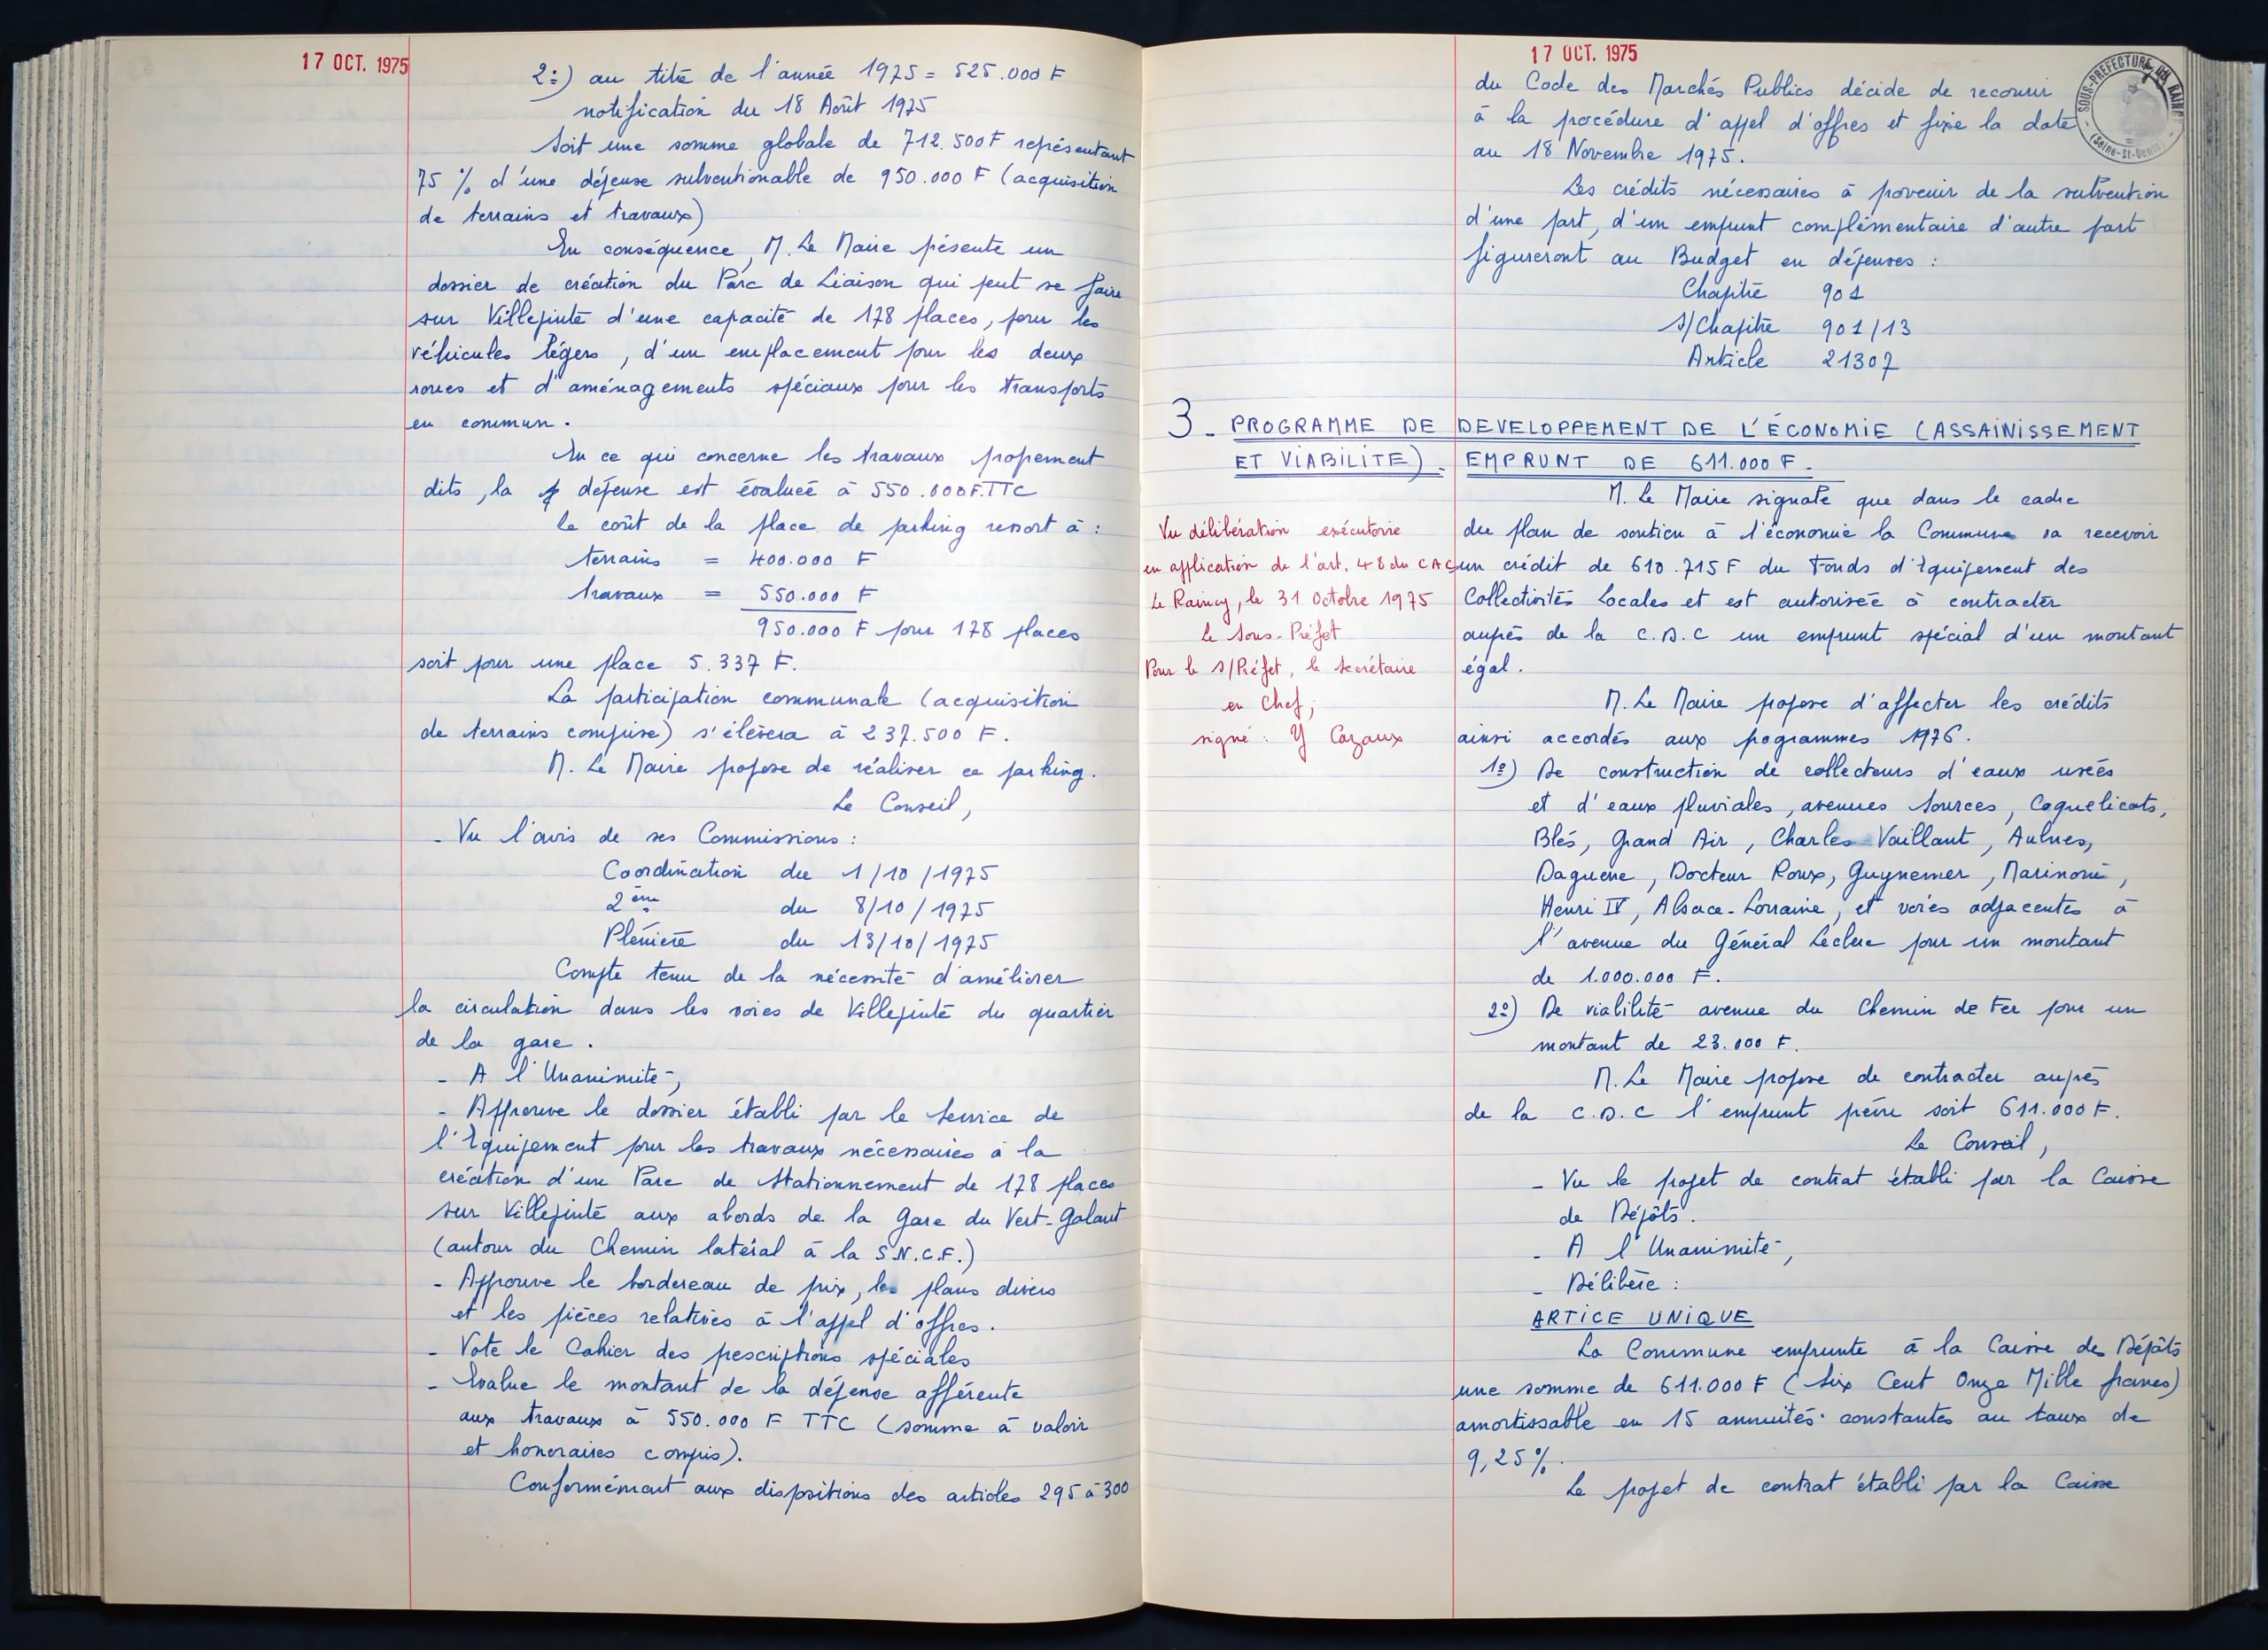 17 OCT. 1975
2:) au titre de l'année 1975 = 525.000 F
notification du 18 Août 1975
Soit une somme globale de 712.500 F représentant
75 % d'une dépense subventionable de 950.000 F (acquisition
de terrains et travaux)
En conséquence, M. Le Maire présente un
dossier de création du Parc de Liaison qui peut se faire
sur Villepinte d'une capacité de 178 places, pour les
véhicules légers, d'un emplacement pour les deux
roues et d'aménagements spéciaux pour les transports
en commun.
En ce qui concerne les travaux proprement
dits, la dépense est évaluée à 550.000F.TTC
Le coût de la place de parking ressort à :
terrains = 400.000 F
travaux = 550.000 F
950.000 F pour 178 places
soit pour une place 5.337 F.
La participation communale (acquisition
de terrains comprise) s'élèvera à 237.500 F.
M. Le Maire propose de réaliser ce parking.
Le Conseil,
- Vu l'avis de ses Commissions :
Coordination du 1/10/1975
2ème du 8/10/1975
Plénière du 13/10/1975
Compte tenu de la nécessité d'améliorer
la circulation dans les voies de Villepinte du quartier
de la gare.
- A l'Unanimité,
- Approuve le dossier établi par le Service de
l'Equipement pour les travaux nécessaires à la
création d'un Parc de Stationnement de 178 places
sur Villepinte aux abords de la Gare du Vert-Galant
(autour du Chemin latéral à la S.N.C.F.)
- Approuve le bordereau de prix, les plans divers
et les pièces relatives à l'appel d'offres.
- Vote le Cahier des prescriptions spéciales
- Evalue le montant de la dépense afférente
aux travaux à 550.000 F TTC (somme à valoir
et honoraires compris).
Conformément aux dispositions des articles 295 à 300
17 OCT. 1975
SOUS-PRÉFECTURE DU RAINCY
(Seine-St-Denis)
du Code des Marchés Publics décide de recourir
à la procédure d'appel d'offres et fixe la date
au 18 Novembre 1975.
Les crédits nécessaires à provenir de la subvention
d'une part, d'un emprunt complémentaire d'autre part
figureront au Budget en dépenses :
Chapitre 901
S/Chapitre 901/13
Article 21307
3. PROGRAMME DE DEVELOPPEMENT DE L'ÉCONOMIE (ASSAINISSEMENT
ET VIABILITE). EMPRUNT DE 611.000 F.
M. Le Maire signale que dans le cadre
du plan de soutien à l'économie la Commune va recevoir
un crédit de 610.715 F du Fonds d'Equipement des
Collectivités Locales et est autorisée à contracter
auprès de la C.D.C un emprunt spécial d'un montant
égal.
Vu délibération exécutoire
en application de l'art. 48 du CAC
Le Raincy, le 31 Octobre 1975
Le Sous-Préfet
Pour le S/Préfet, le Secrétaire
en Chef,
signé : Y Cazaux
M. Le Maire propose d'affecter les crédits
ainsi accordés aux programmes 1976.
1º) De construction de collecteurs d'eaux usées
et d'eaux pluviales, avenues Sources, Coquelicots,
Blés, Grand Air, Charles Vaillant, Aulnes,
Daguerre, Docteur Roux, Guynemer, Marinoni,
Henri IV, Alsace-Lorraine, et voies adjacentes à
l'avenue du Général Leclerc pour un montant
de 1.000.000 F.
2º) De viabilité avenue du Chemin de Fer pour un
montant de 23.000 F.
M. Le Maire propose de contracter auprès
de la C.D.C l'emprunt prévu soit 611.000 F.
Le Conseil,
- Vu le projet de contrat établi par la Caisse
de Dépôts.
- A l'Unanimité,
- Délibère :
ARTICE UNIQUE
La Commune emprunte à la Caisse des Dépôts
une somme de 611.000 F (Six Cent Onze Mille francs)
amortissable en 15 annuités constantes au taux de
9,25%.
Le projet de contrat établi par la Caisse